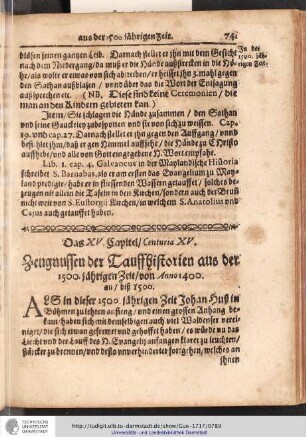 aus der 1500 jährigen Zeit. 741
blossen seinen gantzen Leib. Darnach stellet er jhn mit dem Gesichte
nach dem Niedergang/da muß er die Hände außstrecken in die Hö-
he/als wolte er etwas von sich abtreiben/er heisset jhn 3. mahl gegen
den Sathan außblasen / und über das die Wort der Entsagung
außsprechen etc. (NB. Diese sind keine Ceremonien / die
man an den Kindern gebieten kan.)
Item/ Sie schlagen die Hände zusammen / den Sathan
und seine Gauckeley zubespotten und sie von sich zu weissen. Cap.
19. und cap. 22. Darnach stellet er jhn gegen den Auffgang/ unnd
heißt jhm/daß er gen Himmel auffsehe/ die Hände zu Christo
auffhebe/und also von Gott eingegeben H. Wort empfahe.
Lib. 1. cap. 4. Galvaneus in der Mayländische Historia
schreibet S. Barnabas, als er am ersten das Evangelium zu May-
land predigte/ habe er in fliessenden Wassern getauffet / solches be-
zeugen mit allein die Tafeln in den Kirchen/ sondern auch der Brun
nicht weit von S. Eustorgii Kirchen / in welchem S. Anatolius und
Cajus auch getauffet haben.
In der
1500. jäh-
rigen Zeit.
Das XV. Capitel/ Centuria XV.
Zeugnussen der Tauffhistorien aus der
1500. jährigen Zeit/ von Anno 1400.
an/ biß 1500.
ALS in dieser 1500 jährigen Zeit Johan Huß in
Böhmen zu lehren anfieng / und einen grossen Anhang be-
kam/haben sich mit demselbigen auch viel Waldenser verei-
niget/die sich etwan gefrewet und gehoffet haben / es würde nu das
Liecht und der Lauff des H. Evangelij anfangen klarer zu leuchten/
stärcker zu brennen/ und desto unverhinderter fortgehen/ welches an
jhnen
http://tudigit.ulb.tu-darmstadt.de/show/Gue-1717/0789
Universitäts- und Landesbibliothek Darmstadt
TECHNISCHE
UNIVERSITÄT
DARMSTADT